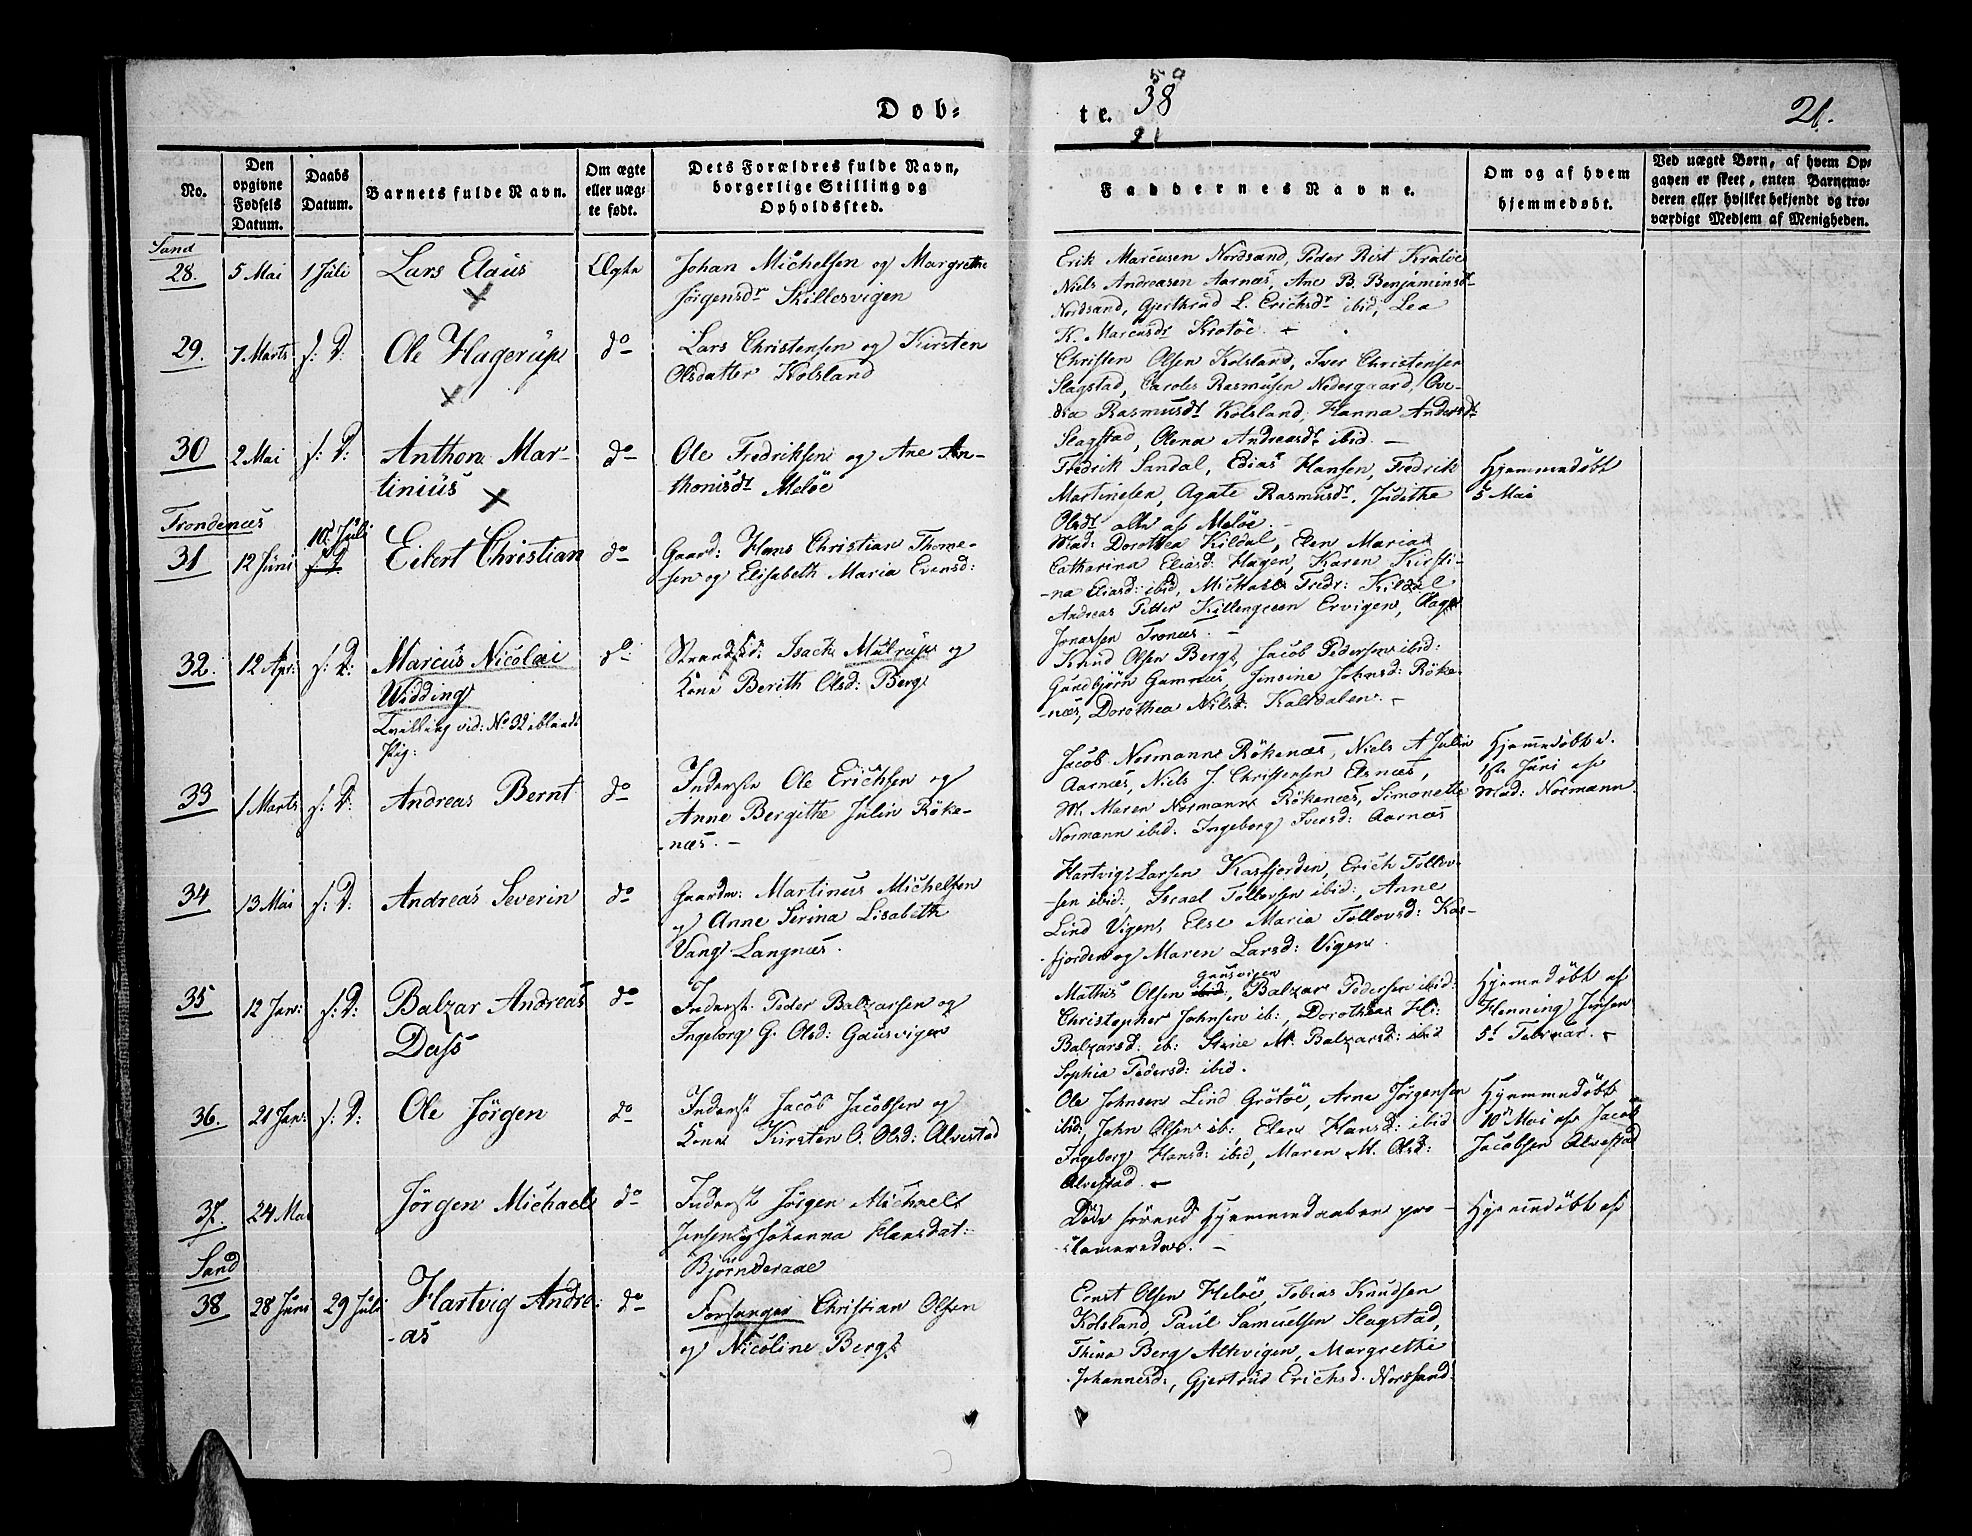 Døb-
te.
59
38
21
21.
No.
Den opgivne Fødsels Datum.
Daabs Datum.
Barnets fulde Navn.
Om ægte eller uægte født.
Dets Forældres fulde Navn, borgerlige Stilling og Opholdssted.
Faddernes Navne.
Om og af hvem hjemmedøbt.
Ved uægte Børn, af hvem Opgaven er skeet, enten Barnemoderen eller hvilket bekjendt og troværdigt Medlem af Menigheden.
Sand
28. 5 Mai 1 Juli Lars Elaus Ægte
Johan Michelsen og Margrethe
Jörgensdr Skillesvigen
Erik Marcusen Nordsand, Peder Rist Krotöe
Niels Andreasen Aarnæs, Ane B. Benjaminsdr
Nordsand, Gjerthrud L. Erichsdr ibid, Lea
K. Marcusdr Krotöe
29. 7 Marts s: D: Ole Hagerup do
Lars Christensen og Kirsten
Olsdatter Kolsland
Christen Olsen Kolsland, Iver Christensen
Slagstad, Caroles Rasmusen Nedergaard, Ove-
dia Rasmusdr Kolsland, Hanna Andersdr
Slagstad, Olena Andreasdr ibid. -
30 2 Mai s: D: Anthon Mar-
tinius do
Ole Fredriksen og Ane An-
thonisdr Melöe
Fredrik Sandal, Edias Hansen, Fredrik
Martinesen, Agate Rasmusdr, Judithe
Olsdr alle af Melöe. -
Hjemmedöbt
5 Mai
Trondenæs
31 12 Juni 10 Juli
s. D Eibert Christian do
Gaard: Hans Christian Thome-
sen og Elisabeth Maria Evensd:
Mad: Dorothea Kildal, Elen Maria
Catharina Eliasd: Hagen, Karen Kirsti-
-na Eliasd: ibid, Michael Fredr: Kildal
Andreas Petter Killengreen Ervigen,
Jonassen Tronæs. -
32. 12 Apr: s: D: Marcus Nicolai
Widding
Tvilling vid: No 32 iblandt
Pig: do
Strandsid: Isach Mulrup og
Kone Berith Olsd: Berg
Knud Olsen Berg, Jacob Pedersen ibid:
Gundbjörn Gamnæs, Jensine Johnsd: Röke-
-næs, Dorothea Nilsd: Kaltdalen. -
33 1 Marts s: D: Andreas Bernt do
Inderste Ole Erichsen og
Anne Bergithe Julin Röke-
-næs. -
Jacob Normann Rökenæs, Niels A Julin
Aarnæs, Niels J. Christensen Elsnæs,
M. Maren Normann Rökenæs, Simonette
Normann ibid. Ingeborg Iversd: Aarnæs
Hjemmedöbt d.
1ste Juni af
Mad: Normann
34 13 Mai s: D: Andreas Severin do
Gaardm: Martinus Michelsen
og Anne Serina Lisabeth
Vang Langnæs.
Hartvig Larsen Kasfjorden, Erich Tollev-
sen ibid:, Israel Tollevsen ibid:, Anne
Lind Vigen, Else Maria Tollevsd: Kas-
fjorden og Maren Larsd: Vigen.
35 12 Jan: s: D: Balzar Andreas
Dass do
Inderst: Peder Balzarsen og
Ingeborg G. Olsd: Gausvigen
Mathis Olsen ibid: Gausvigen, Balzar Pedersen ibid:
Christopher Johnsen ib:, Dorothea H:
Balzarsd: ib: Stine M. Balzarsd: ibid
Sophia Pedersd: ibid.
Hjemmedöbt af
Henning Jensen
5t Februar. -
36. 21 Jan: s: D: Ole Jörgen do
Inderst Jacob Jacobsen og
Kone Kirsten O. Olsd: Alvestad
Ole Johnsen Lind Grötöe, Arne Jörgensen
ibid, John Olsen ib: Elen Hansd: ibid
Ingeborg Hansd: ibid, Maren M. Olsd:
Alvestad. -
Hjemmedöbt
10 Mai af Jacob
Jacobsen Alvestad
37. 24 Mai Jörgen Michael do
Inderst Jörgen Michael
Jensen og Johanna Hansdat:
Björnderaae
Döde förend Hjemmedaaben pro-
clameredes. -
Hjemmedöbt af
Sand
38 28 Juni 29 Juli Hartvig Andre-
-as do
Forsanger Christian Olsen
og Nicoline Berg
Ernst Olsen Helöe, Tobias Knudsen
Kolsland, Paul Samuelsen Slagstad,
Thina Berg Altevigen, Margrethe
Johannesd:, Gjertrud Erichsd. Nordsand.